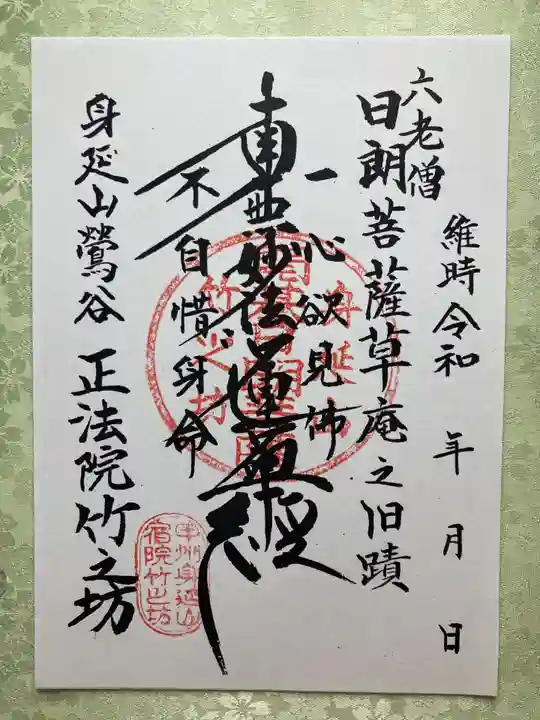 六老僧
日朗菩薩草庵之旧蹟
維時令和 年 月 日
一心欲見佛
南無妙法蓮華経
不自惜身命
身延山鶯谷 正法院竹之坊
身延山
竹之坊
甲州身延山
宿院竹之坊